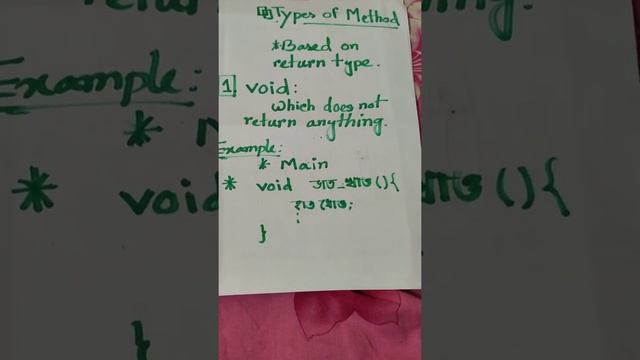 Types of Method
*Based on
return type.
1 void:
which does not
return anything.
Example:
* Main
* void ভাত_খাও(){
হাত ধোও;
:
}